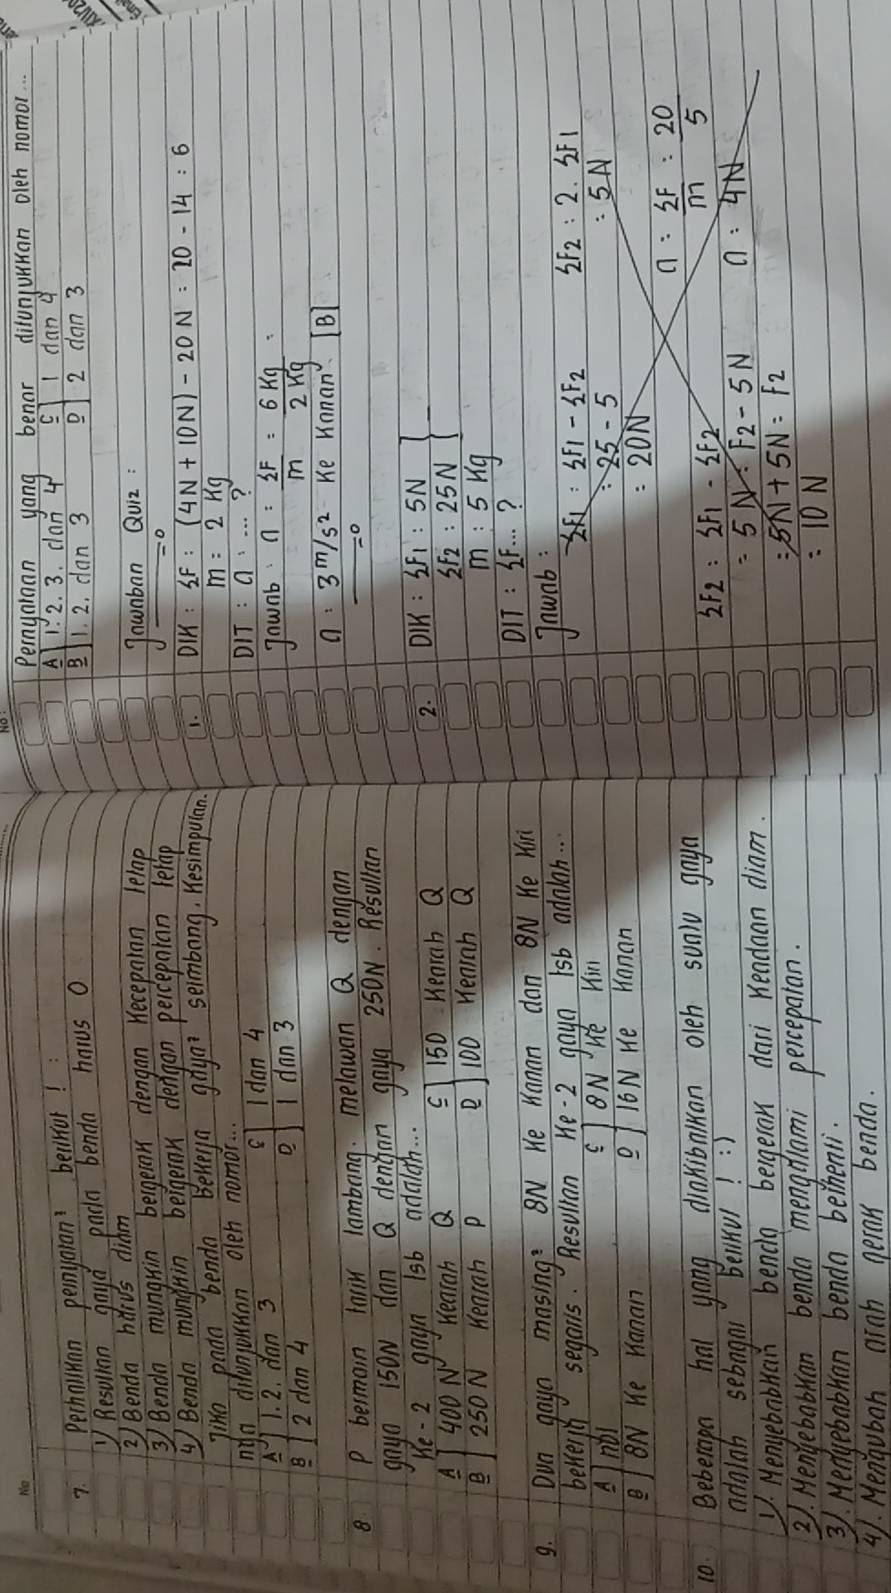 No
7. Perhatikan pernyatan² berikut ! :
1) Resultan gaya pada benda harus 0
2) Benda harus diam
3) Benda mungkin bergerak dengan kecepatan tetap
4) Benda mungkin bergerak dengan percepatan tetap
Jika pada benda bekerja gaya² seimbang, kesimpulan
nya ditunjukkan oleh nomor...
A] 1. 2. dan 3 C] 1 dan 4
B] 2 dan 4 D] 1 dan 3
8 P bermain tarik tambang. melawan Q dengan
gaya 150N dan Q dengan gaya 250N. Resultan
ke-2 gaya tsb adalah...
A] 400 N kearah Q C] 150 kearah Q
B] 250 N kearah P D] 100 kearah Q
9. Dua gaya masing² 8N ke kanan dan 8N ke kiri
bekerja segaris. Resultan ke-2 gaya tsb adalah...
A] nol C] 8N ke kiri
B] 8N ke kanan D] 16N ke kanan
10. Beberapa hal yang diakibatkan oleh suatu gaya
adalah sebagai berikut ! :)
1). Menyebabkan benda bergerak dari keadaan diam.
2). Menyebabkan benda mengalami percepatan.
3). Menyebabkan benda berhenti.
4). Mengubah arah gerak benda.
No:
Pernyataan yang benar ditunjukkan oleh nomor...
A] 1. 2. 3. dan 4 C] 1 dan 4
B] 1. 2. dan 3 D] 2 dan 3
Jawaban Quiz :
1. DIK : ΣF : (4N + 10N) - 20N : 20 - 14 : 6
m : 2 Kg
DIT : a : ... ?
Jawab : a : ΣF/m = 6 Kg/2 Kg :
a : 3 m/s² ke kanan. [B]
2. DIK : ΣF1 : 5N
ΣF2 : 25N
m : 5 Kg
DIT : ΣF... ?
Jawab :
ΣF1 : ΣF1 - ΣF2 ΣF2 : 2. ΣF1
: 25 - 5 : 5N
: 20N
a : ΣF/m : 20/5
ΣF2 : ΣF1 - ΣF2
= 5N : F2 - 5N a : 4N
= 5N + 5N = F2
: 10N